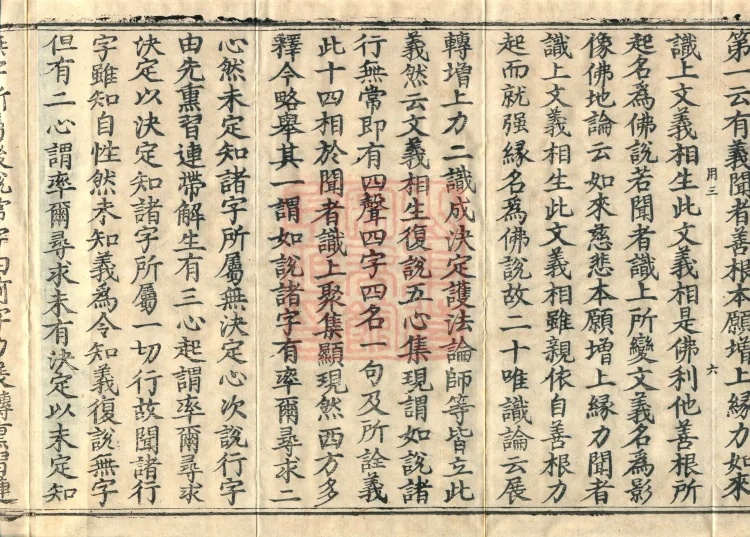 第一云有義聞者善根本願增上緣力如來
識上文義相生此文義相是佛利他善根所
起名為佛說若聞者識上所變文義名為影
用三 六
像佛地論云如來慈悲本願增上緣力聞者
識上文義相生此文義相雖親依自善根力
起而就强緣名為佛說故二十唯識論云展
轉增上力二識成決定護法論師等皆立此
義然云文義相生復說五心集現謂如說諸
行無常即有四聲四字四名一句及所詮義
此十四相於聞者識上聚集顯現然西方多
釋今略舉其一謂如說諸字有率爾尋求二
心然未定知諸字所屬無決定心次說行字
由先熏習連帶解生有三心起謂率爾尋求
決定以決定知諸字所屬一切行故聞諸行
字雖知自性然未知義爲令知義復說無字
但有二心謂率爾尋求未有決定以未定知
字所屬後說常字力展轉熏習連